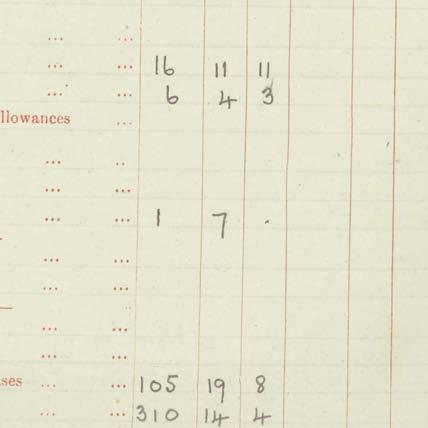 ... ...
... ... 16 11 11
... ... 6 4 3
llowances ...
... ..
... ...
... ... 1 7 .
... ...
... ...
... ...
... ...
ses ... ... 105 19 8
... ... 310 14 4